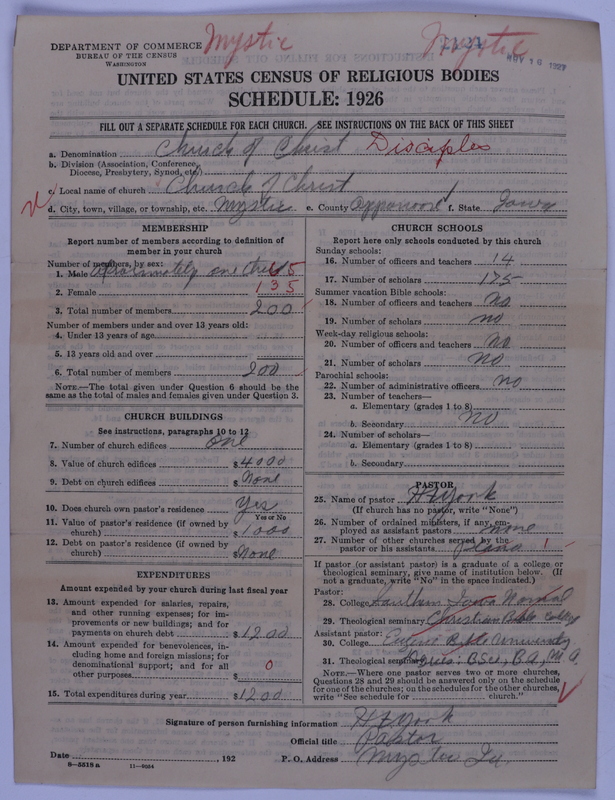 Mystic
Mystic
NOV 16 1927
DEPARTMENT OF COMMERCE
BUREAU OF THE CENSUS
WASHINGTON
UNITED STATES CENSUS OF RELIGIOUS BODIES
SCHEDULE: 1926
FILL OUT A SEPARATE SCHEDULE FOR EACH CHURCH. SEE INSTRUCTIONS ON THE BACK OF THIS SHEET
a. Denomination Church of Christ Disciples
b. Division (Association, Conference, Diocese, Presbytery, Synod, etc.)
c. Local name of church Church of Christ
d. City, town, village, or township, etc. Mystic e. County Appanoose f. State Iowa
MEMBERSHIP
Report number of members according to definition of member in your church
Number of members, by sex:
1. Male aproximately one third 65
2. Female 135
3. Total number of members 200
Number of members under and over 13 years old:
4. Under 13 years of age
5. 13 years old and over
6. Total number of members 200
NOTE.—The total given under Question 6 should be the same as the total of males and females given under Question 3.
CHURCH BUILDINGS
See instructions, paragraphs 10 to 12
7. Number of church edifices one
8. Value of church edifices $4000
9. Debt on church edifices $None
10. Does church own pastor's residence Yes
Yes or No
11. Value of pastor's residence (if owned by church) $1000
12. Debt on pastor's residence (if owned by church) $None
EXPENDITURES
Amount expended by your church during last fiscal year
13. Amount expended for salaries, repairs, and other running expenses; for improvements or new buildings; and for payments on church debt $1200
14. Amount expended for benevolences, including home and foreign missions; for denominational support; and for all other purposes $ 0
15. Total expenditures during year $1200
CHURCH SCHOOLS
Report here only schools conducted by this church
Sunday schools:
16. Number of officers and teachers 14
17. Number of scholars 175
Summer vacation Bible schools:
18. Number of officers and teachers No
19. Number of scholars no
Week-day religious schools:
20. Number of officers and teachers No
21. Number of scholars No
Parochial schools:
22. Number of administrative officers no
23. Number of teachers—
a. Elementary (grades 1 to 8)
b. Secondary No
24. Number of scholars—
a. Elementary (grades 1 to 8)
b. Secondary
PASTOR
25. Name of pastor H E York
(If church has no pastor, write "None")
26. Number of ordained ministers, if any, employed as assistant pastors none
27. Number of other churches served by the pastor or his assistants 1
If pastor (or assistant pastor) is a graduate of a college or theological seminary, give name of institution below. (If not a graduate, write "No" in the space indicated.)
Pastor:
28. College Southern Iowa Normal
29. Theological seminary Christian Bible College
Assistant pastor:
30. College Eugene Bible University
31. Theological seminary BSL, BA, M A.
NOTE.—Where one pastor serves two or more churches, Questions 28 and 29 should be answered only on the schedule for one of the churches; on the schedules for the other churches, write "See schedule for church."
Signature of person furnishing information H E York
Official title Pastor
Date , 192 P. O. Address Mystic Ia.
8—5518 a 11—9024